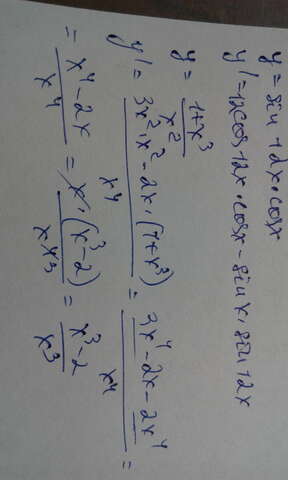 y = sin 12x · cosx
y' = 12cos12x · cosx - sinx · sin12x
y = 1+x³ / x²
y' = 3x² · x² - 2x · (1+x³) / x⁴ = 3x⁴ - 2x - 2x⁴ / x⁴ =
= x⁴ - 2x / x⁴ = x · (x³ - 2) / x · x³ = x³ - 2 / x³